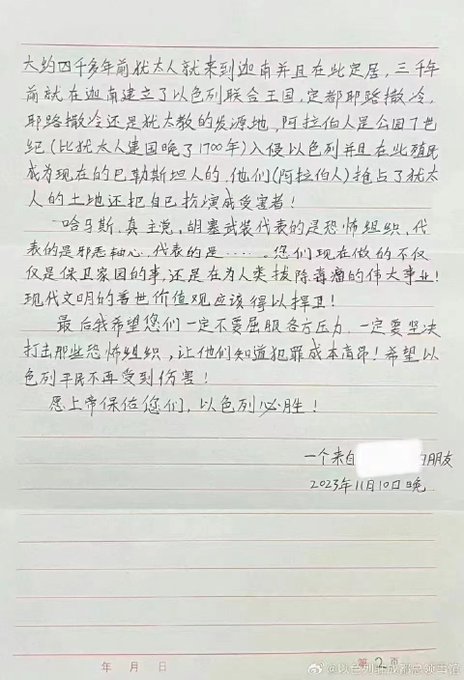 大约四千多年前犹太人就来到迦南并且在此定居，三千年
前就在迦南建立了以色列联合王国，定都耶路撒冷，
耶路撒冷还是犹太教的发源地，阿拉伯人是公园7世
纪（比犹太人建国晚了1700年）入侵以色列并且在此殖民
成为现在的巴勒斯坦人的，他们（阿拉伯人）抢占了犹太
人的土地还把自已扮演成受害者！
哈马斯，真主党，胡塞武装代表的是恐怖组织，代
表的是邪恶轴心，代表的是……。您们现在做的不仅
仅是保卫家园的事，还是在为人类拔除毒瘤的伟大事业！
现代文明的普世价值观应该得以捍卫！
最后我希望您们一定不要屈服各方压力，一定要坚决
打击那些恐怖组织，让他们知道犯罪成本高昂！希望以
色列平民不再受到伤害！
愿上帝保佑您们，以色列必胜！
一个来自 的朋友
2023年11月10日晚
年 月 日
第2页
@以色列驻成都总领事馆